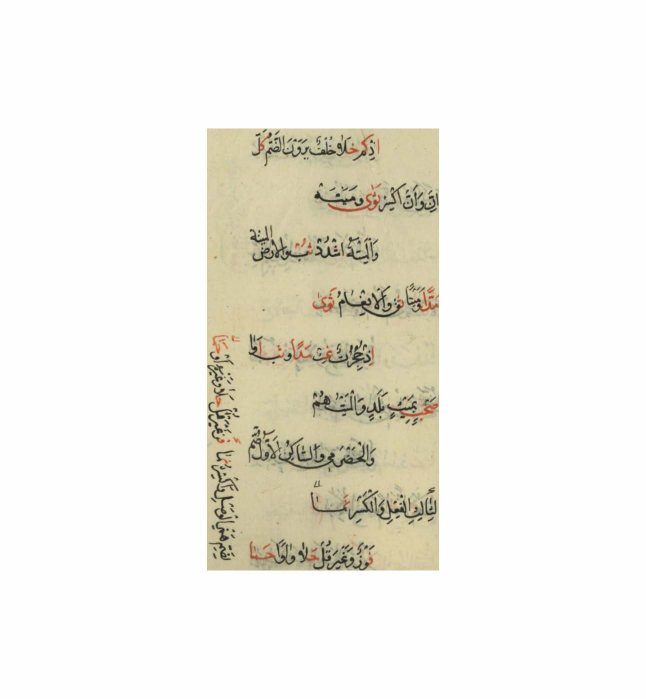 اذ كم خلا وخلف يرون الضم كل
ان وان اكسر ثوى وميته
والميتة اشدد ثب والارض الميتة
مدا وميتا ثق والانعام ثوى
اذ حجرات غث مدا وثب اوا
صحب بميت بلد والميت هم
والحضرمي والساكن الاول ضم
والكسر نما
فز وغير قل حلا واوا حما
لضم همز الوصل واكسره نما فز غير قل حلا وغير او حما